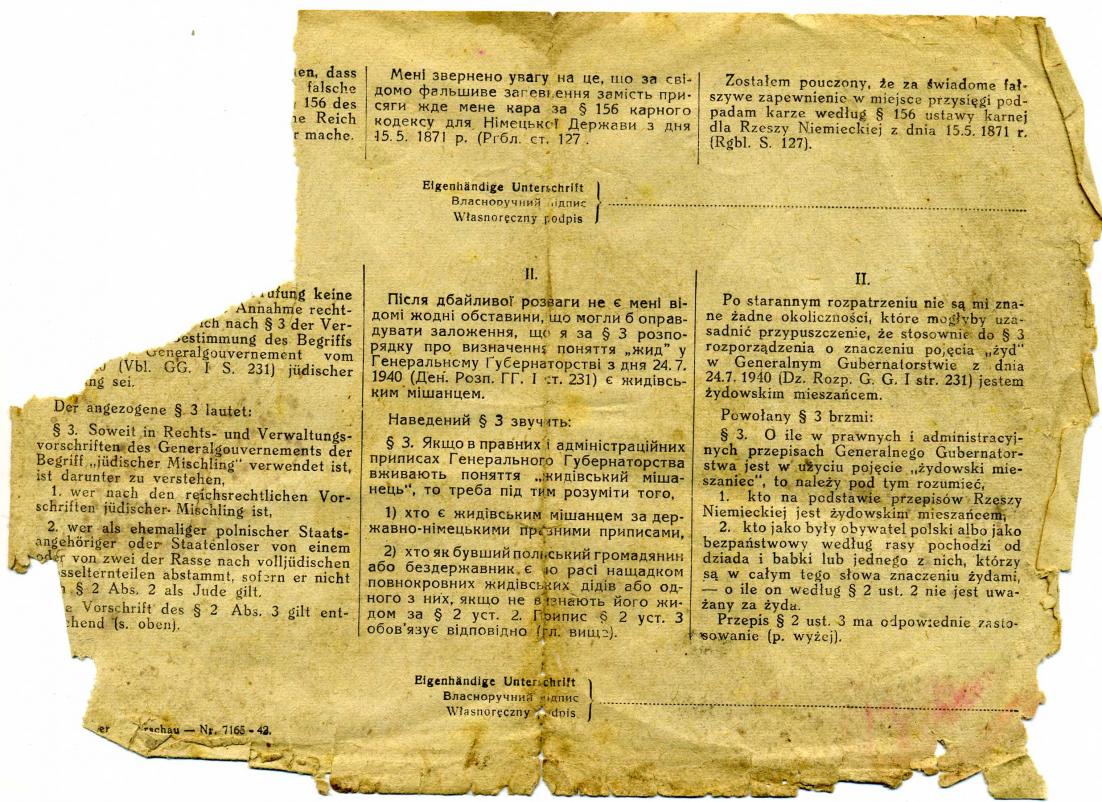 en, dass
falsche
156 des
e Reich
r mache.
Мені звернено увагу на це, що за сві-
домо фальшиве загевлення замість при-
сяги жде мене кара за § 156 карного
кодексу для Німецької Держави з дня
15. 5. 1871 р. (Ргбл. ст. 127 .
Zostałem pouczony, że za świadome fał-
szywe zapewnienie w miejsce przysięgi pod-
padam karze według § 156 ustawy karnej
dla Rzeszy Niemieckiej z dnia 15.5. 1871 r.
(Rgbl. S. 127).
Eigenhändige Unterschrift
Власноручний підпис
Własnoręczny podpis
rufung keine
Annahme recht-
ich nach § 3 der Ver-
estimmung des Begriffs
Generalgouvernement vom
0 (Vbl. GG. I S. 231) jüdischer
ng sei.
Der angezogene § 3 lautet:
§ 3. Soweit in Rechts- und Verwaltungs-
vorschriften des Generalgouvernements der
Begriff „jüdischer Mischling" verwendet ist,
ist darunter zu verstehen,
1. wer nach den reichsrechtlichen Vor-
schriften jüdischer Mischling ist,
2. wer als ehemaliger polnischer Staats-
angehöriger oder Staatenloser von einem
oder von zwei der Rasse nach volljüdischen
sselternteilen abstammt, sofern er nicht
§ 2 Abs. 2 als Jude gilt.
e Vorschrift des § 2 Abs. 3 gilt ent-
chend (s. oben).
II.
Після дбайливої розваги не є мені ві-
домі жодні обставини, що могли б оправ-
дувати заложення, що я за § 3 розпо-
рядку про визначення поняття „жид" у
Генеральному Губернаторстві з дня 24. 7.
1940 (Ден. Розп. ГГ. I ст. 231) є жидівсь-
ким мішанцем.
Наведений § 3 звучить:
§ 3. Якщо в правних і адміністраційних
приписах Генерального Губернаторства
вживають поняття „жидівський міша-
нець", то треба під тим розуміти того,
1) хто є жидівським мішанцем за дер-
жавно-німецькими правними приписами,
2) хто як бувший польський громадянин
або бездержавник є по расі нащадком
повнокровних жидівських дідів або од-
ного з них, якщо не визнають його жи-
дом за § 2 уст. 2. Припис § 2 уст. 3
обов'язує відповідно (гл. вище).
II.
Po starannym rozpatrzeniu nie są mi zna-
ne żadne okoliczności, które mogłyby uza-
sadnić przypuszczenie, że stosownie do § 3
rozporządzenia o znaczeniu pojęcia „żyd"
w Generalnym Gubernatorstwie z dnia
24.7. 1940 (Dz. Rozp. G. G. I str. 231) jestem
żydowskim mieszańcem.
Powołany § 3 brzmi:
§ 3. O ile w prawnych i administracyj-
nych przepisach Generalnego Gubernator-
stwa jest w użyciu pojęcie „żydowski mie-
szaniec", to należy pod tym rozumieć,
1. kto na podstawie przepisów Rzeszy
Niemieckiej jest żydowskim mieszańcem,
2. kto jako były obywatel polski albo jako
bezpaństwowy według rasy pochodzi od
dziada i babki lub jednego z nich, którzy
są w całym tego słowa znaczeniu żydami,
— o ile on według § 2 ust. 2 nie jest uwa-
żany za żyda.
Przepis § 2 ust. 3 ma odpowiednie zasto-
sowanie (p. wyżej).
Eigenhändige Unterschrift
Власноручний підпис
Własnoręczny podpis
er rschau — Nr. 7165 - 42.